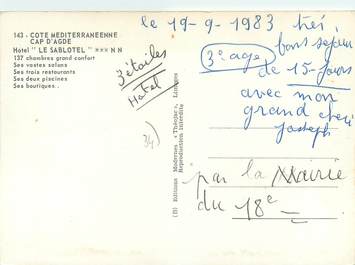 143 - COTE MEDITERRANEENNE
CAP D'AGDE
Hotel " LE SABLOTEL " *** N N
137 chambres grand confort
Ses vastes salons
Ses trois restaurants
Ses deux piscines
Ses boutiques...
3 étoiles
Hotel
34)
(B) Editions Modernes « Théojac », Limoges
Reproduction interdite
le 19-9-1983 très
bons sejour
3e age
de 15-Jours
avec mon
grand cheri
Joseph
par la Mairie
du 18e -